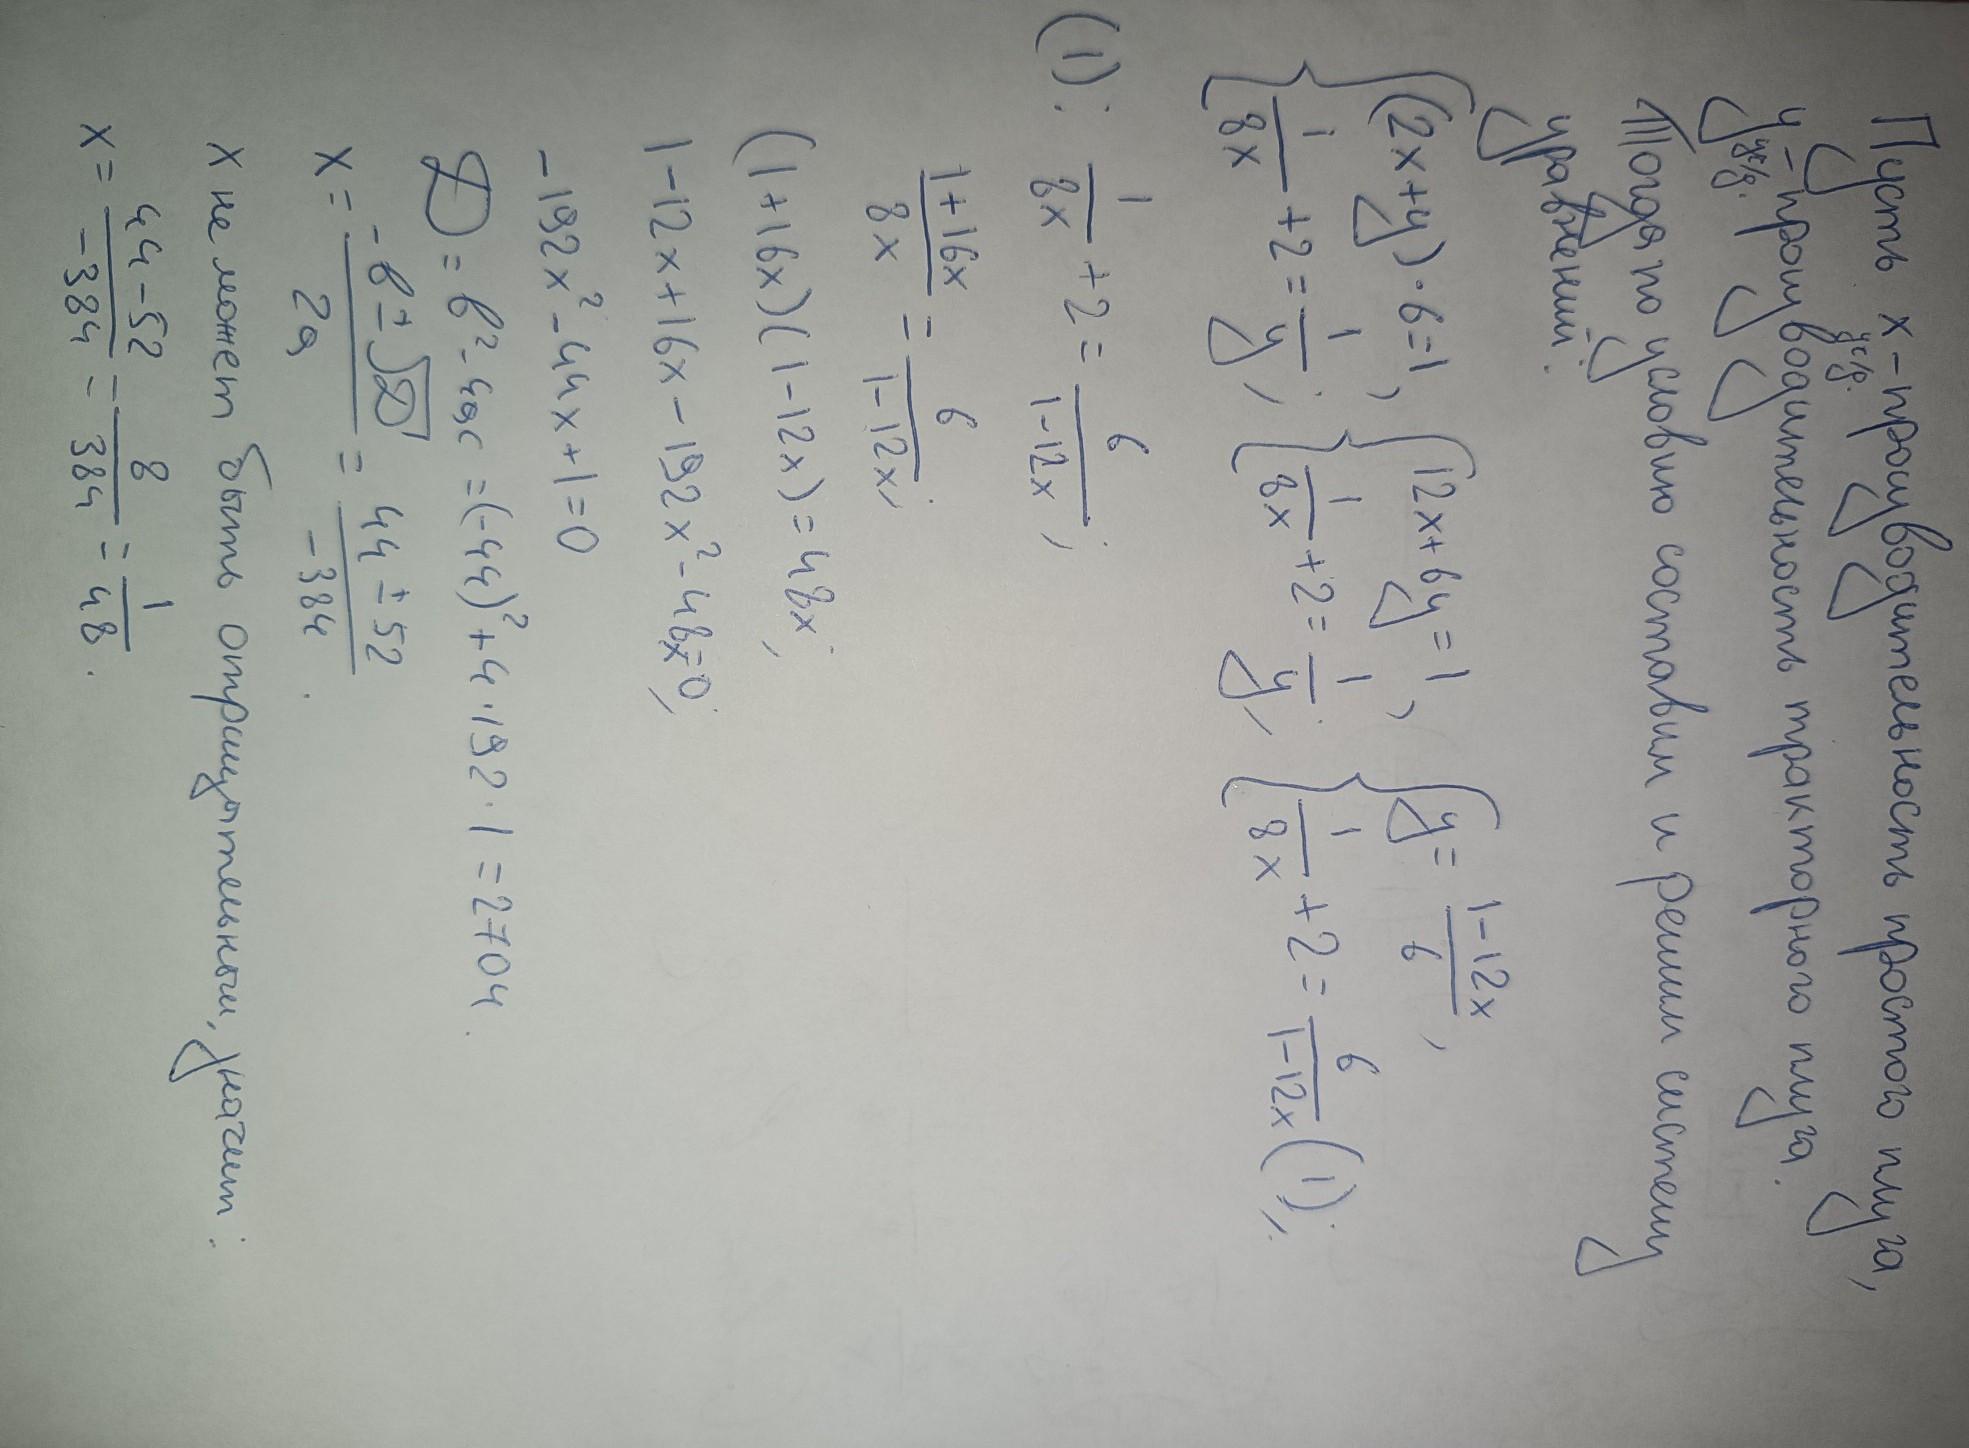 Пусть x - производительность простого плуга,
y - производительность тракторного плуга.
Тогда по условию составим и решим систему
уравнений:
{(2x+y)·6=1, {12x+6y=1, {y=(1-12x)/6,
{1/8x+2=1/y; {1/8x+2=1/y; {1/8x+2=6/(1-12x) (1);
(1): 1/8x+2=6/(1-12x);
(1+16x)/8x=6/(1-12x);
(1+16x)(1-12x)=48x;
1-12x+16x-192x²-48x=0;
-192x²-44x+1=0
D=b²-4ac=(-44)²+4·192·1=2704.
x=(-b±√D)/2a=(44±52)/-384.
x не может быть отрицательным, значит:
x=(44-52)/-384=8/384=1/48.